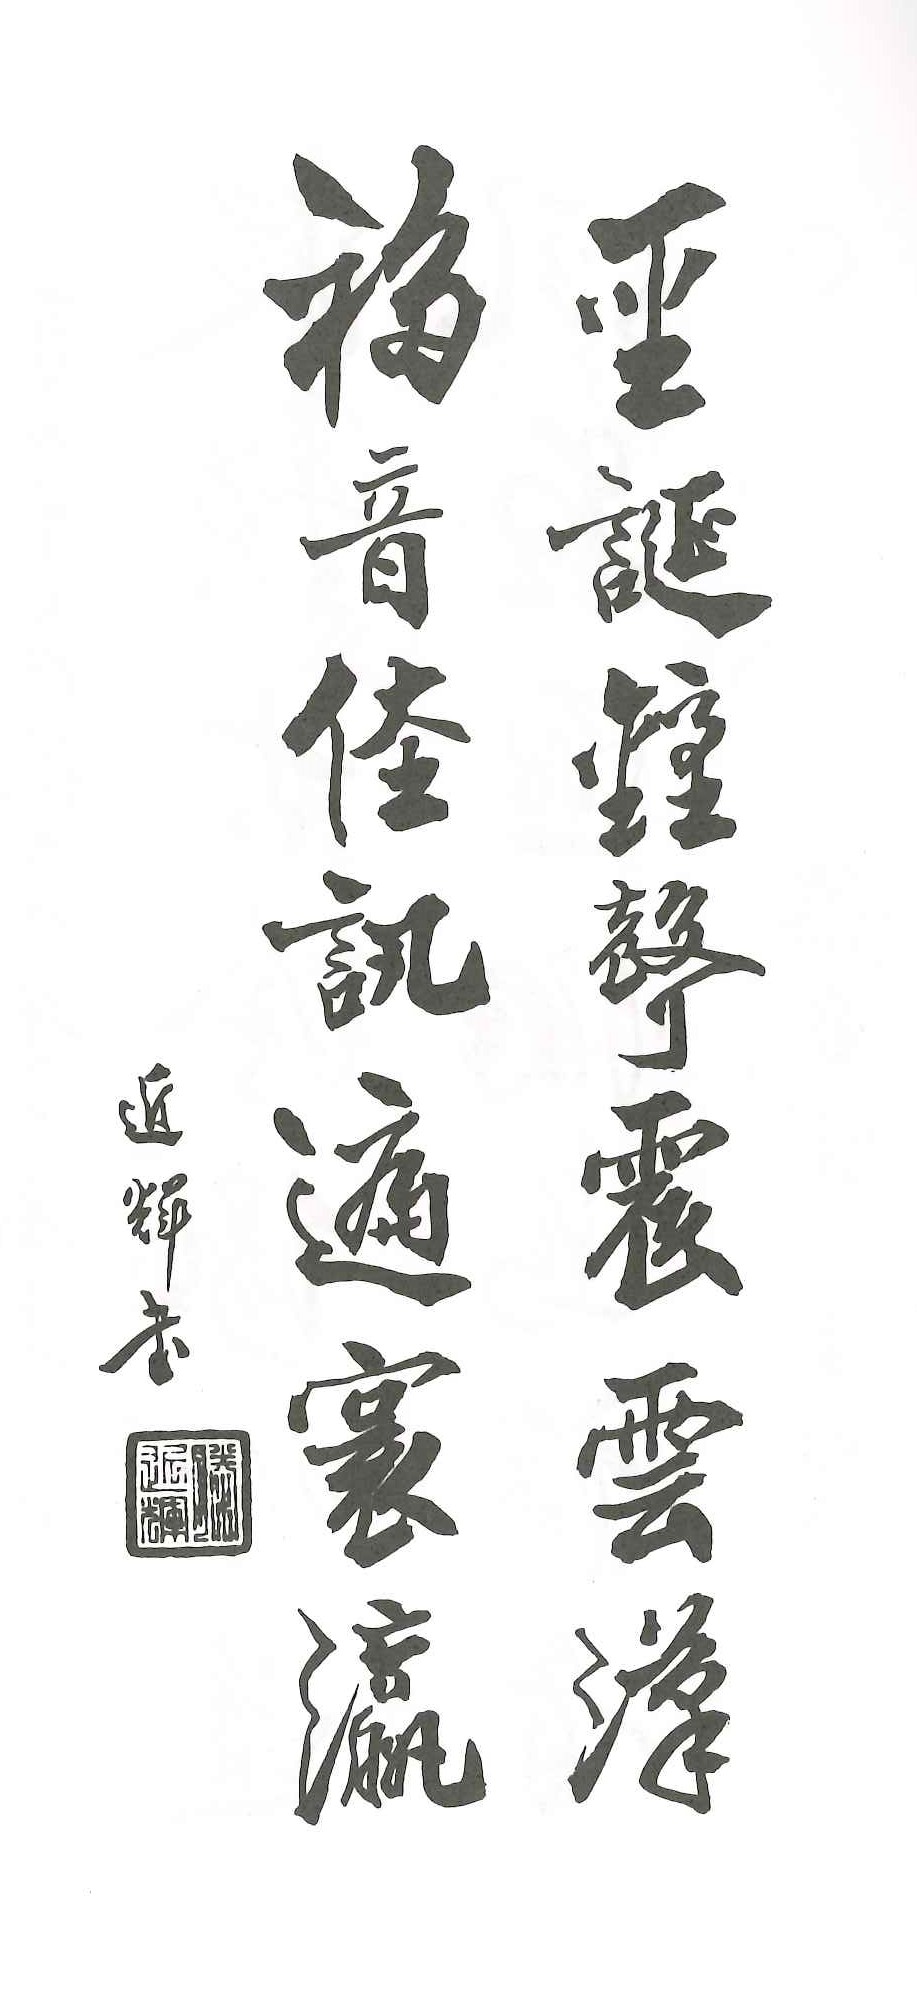 聖誕鐘聲震雲漢
福音佳訊遍寰瀛
近輝書
滕近輝